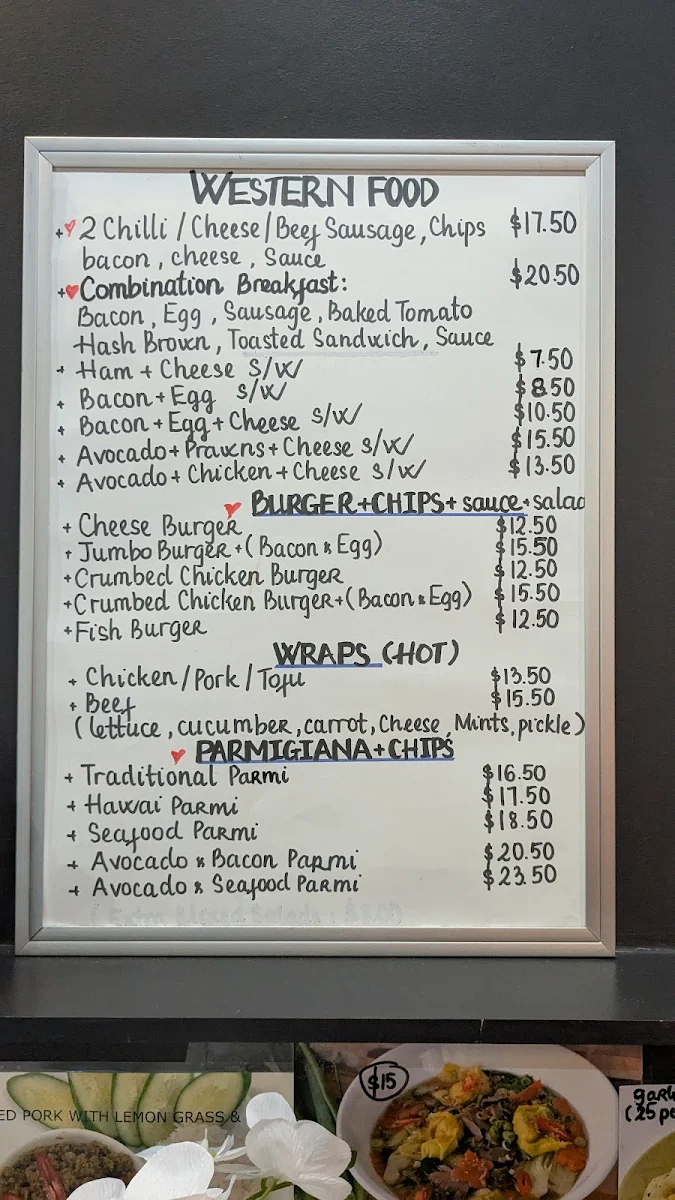 WESTERN FOOD
+ 2 Chilli / Cheese / Beef Sausage, Chips $17.50
bacon, cheese, Sauce
+ Combination Breakfast: $20.50
Bacon, Egg, Sausage, Baked Tomato
Hash Brown, Toasted Sandwich, Sauce
+ Ham + Cheese S/W $7.50
+ Bacon + Egg S/W $8.50
+ Bacon + Egg + Cheese S/W $10.50
+ Avocado + Prawns + Cheese S/W $15.50
+ Avocado + Chicken + Cheese S/W $13.50
BURGER + CHIPS + sauce + salad
+ Cheese Burger $12.50
+ Jumbo Burger + (Bacon & Egg) $15.50
+ Crumbed Chicken Burger $12.50
+ Crumbed Chicken Burger + (Bacon & Egg) $15.50
+ Fish Burger $12.50
WRAPS (HOT)
+ Chicken / Pork / Tofu $13.50
+ Beef $15.50
(lettuce, cucumber, carrot, Cheese, Mints, pickle)
PARMIGIANA + CHIPS
+ Traditional Parmi $16.50
+ Hawai Parmi $17.50
+ Seafood Parmi $18.50
+ Avocado & Bacon Parmi $20.50
+ Avocado & Seafood Parmi $23.50
ED PORK WITH LEMON GRASS &
$15
(25